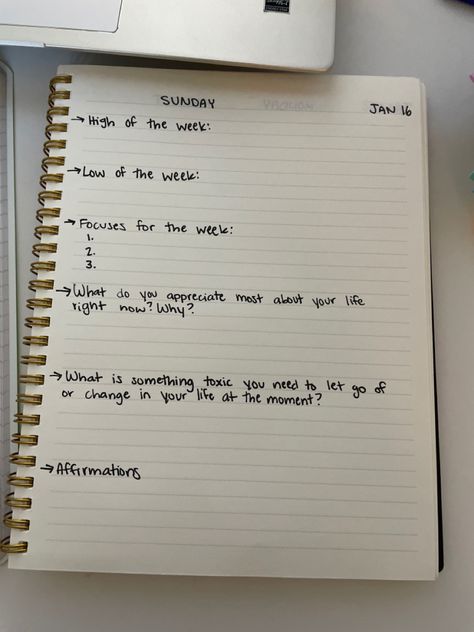 SUNDAY
JAN 16
→ High of the week:
→ Low of the week:
→ Focuses for the week:
1.
2.
3.
→ What do you appreciate most about your life
right now? Why?
→ What is something toxic you need to let go of
or change in your life at the moment?
→ Affirmations